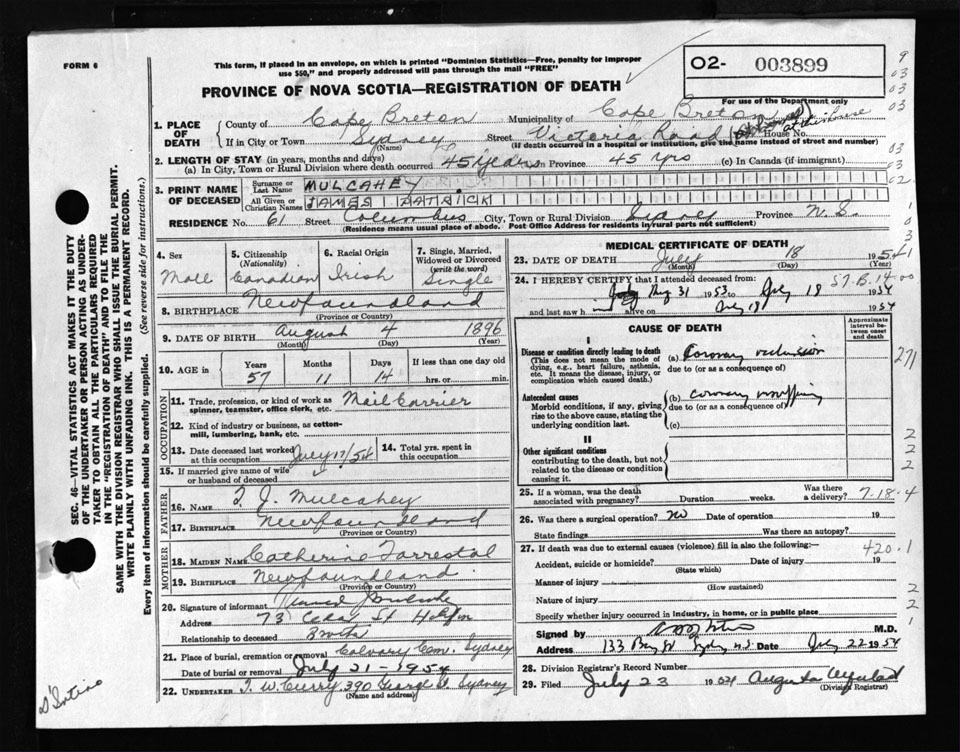 FORM 6
This form, if placed in an envelope, on which is printed "Dominion Statistics—Free, penalty for improper
use $50," and properly addressed will pass through the mail "FREE"
O2- 003899
PROVINCE OF NOVA SCOTIA—REGISTRATION OF DEATH
For use of the Department only
1. PLACE OF DEATH
County of Cape Breton Municipality of Cape Breton
If in City or Town Sydney (Name) Street Victoria Road House No.
(If death occurred in a hospital or institution, give the name instead of street and number)
2. LENGTH OF STAY (in years, months and days)
(a) In City, Town or Rural Division where death occurred 45 years Province 45 yrs (c) In Canada (if immigrant)
3. PRINT NAME OF DECEASED
Surname or Last Name MULCAHEY
All Given or Christian Names JAMES PATRICK
RESIDENCE No. 61 Street Columbus City, Town or Rural Division Sydney Province N.S.
(Residence means usual place of abode. Post Office Address for residents in rural parts not sufficient)
4. Sex Male
5. Citizenship (Nationality) Canadian
6. Racial Origin Irish
7. Single, Married, Widowed or Divorced (write the word) Single
8. BIRTHPLACE Newfoundland
(Province or Country)
9. DATE OF BIRTH August 4 1896
(Month) (Day) (Year)
10. AGE in Years 57 Months 11 Days 14 If less than one day old hrs. or min.
OCCUPATION
11. Trade, profession, or kind of work as spinner, teamster, office clerk, etc. Mail Carrier
12. Kind of industry or business, as cotton-mill, lumbering, bank, etc.
13. Date deceased last worked at this occupation July 17/54
14. Total yrs. spent in this occupation
15. If married give name of wife or husband of deceased
FATHER
16. NAME T. J. Mulcahey
17. BIRTHPLACE Newfoundland
(Province or Country)
MOTHER
18. MAIDEN NAME Catherine Forrestal
19. BIRTHPLACE Newfoundland
(Province or Country)
20. Signature of informant
Address 73 St
Relationship to deceased Brother
21. Place of burial, cremation or removal Calvary Cem. Sydney
Date of burial or removal July 21-1954
22. UNDERTAKER T. W. Curry 390 George St. Sydney
(Name and address)
MEDICAL CERTIFICATE OF DEATH
23. DATE OF DEATH July 18 1954
(Month) (Day) (Year)
24. I HEREBY CERTIFY that I attended deceased from: 57.B.14.00
Aug 31 1953 to July 18 1954
and last saw him alive on July 18 1954
CAUSE OF DEATH
Approximate interval between onset and death
I
Disease or condition directly leading to death
(This does not mean the mode of dying, e.g., heart failure, asthenia, etc. It means the disease, injury, or complication which caused death.)
(a) Coronary occlusion
due to (or as a consequence of)
Antecedent causes
Morbid conditions, if any, giving rise to the above cause, stating the underlying condition last.
(b) coronary
due to (or as a consequence of)
(c)
II
Other significant conditions
contributing to the death, but not related to the disease or condition causing it.
25. If a woman, was the death associated with pregnancy? Duration weeks. Was there a delivery? 7-18-4
26. Was there a surgical operation? No Date of operation 19
State findings Was there an autopsy?
27. If death was due to external causes (violence) fill in also the following:— 420.1
Accident, suicide or homicide? Date of injury 19
(State which)
Manner of injury
(How sustained)
Nature of injury
Specify whether injury occurred in industry, in home, or in public place
Signed by M.D.
Address 133 Bay St Sydney N.S. Date July 22 1954
28. Division Registrar's Record Number
29. Filed July 23 1954 Augusta
(Division Registrar)
SEC. 46—VITAL STATISTICS ACT MAKES IT THE DUTY
OF THE UNDERTAKER OR PERSON ACTING AS UNDER-
TAKER TO OBTAIN ALL THE PARTICULARS REQUIRED
IN THE "REGISTRATION OF DEATH" AND TO FILE THE
SAME WITH THE DIVISION REGISTRAR WHO SHALL ISSUE THE BURIAL PERMIT.
WRITE PLAINLY WITH UNFADING INK. THIS IS A PERMANENT RECORD.
Every item of information should be carefully supplied. (See reverse side for instructions.)